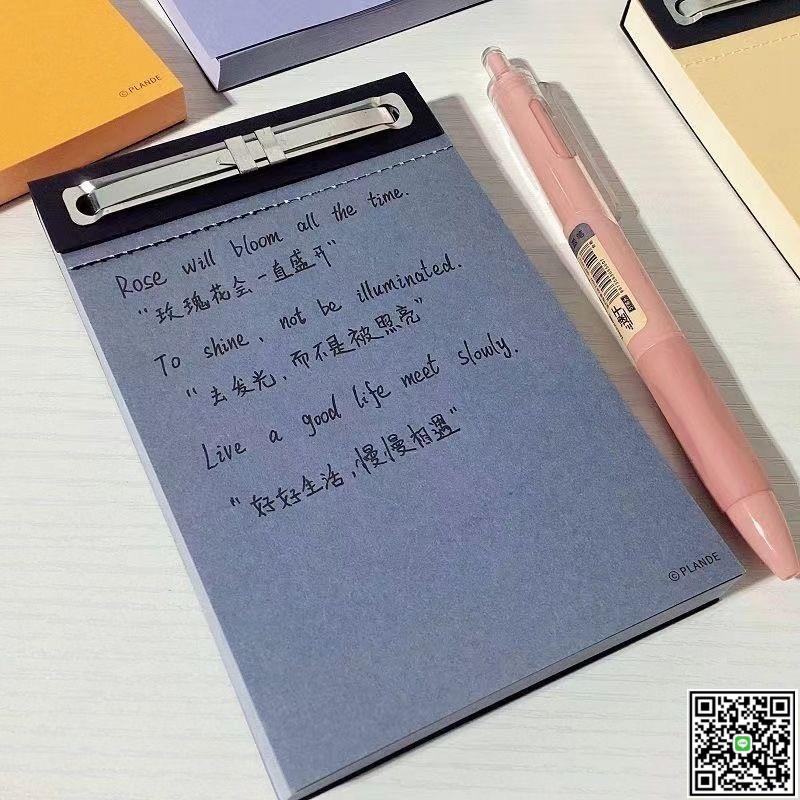 ©PLANDE
Rose will bloom all the time.
"玫瑰花会一直盛开"
To shine, not be illuminated.
"去发光,而不是被照亮"
Live a good life meet slowly.
"好好生活,慢慢相遇"
©PLANDE
速干